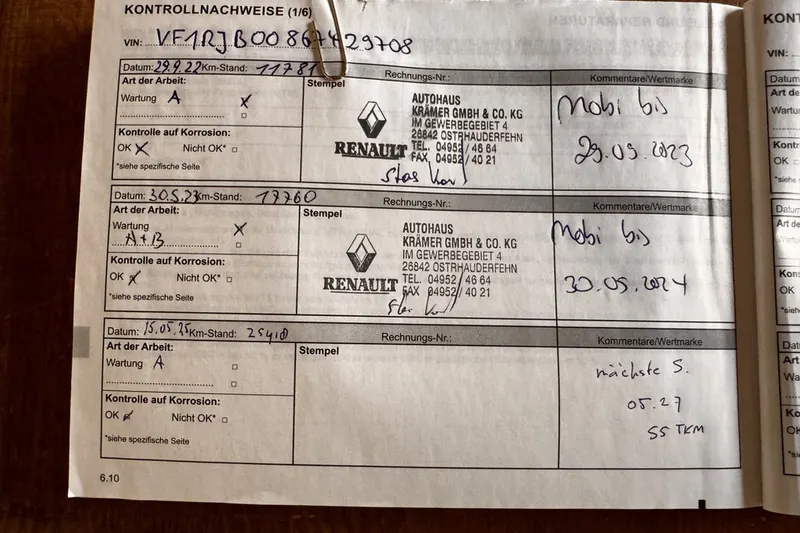 KONTROLLNACHWEISE (1/6)
VIN: VF1RJB00867429708
Datum: 29.9.22 Km-Stand: 11781 Rechnungs-Nr.: Kommentare/Wertmarke
Art der Arbeit: Stempel
Wartung A X
Kontrolle auf Korrosion:
OK X Nicht OK*
*siehe spezifische Seite
RENAULT
AUTOHAUS
KRÄMER GMBH & CO. KG
IM GEWERBEGEBIET 4
26842 OSTRHAUDERFEHN
TEL. 04952 / 46 64
FAX 04952 / 40 21
Mobi bis
29.09.2023
Datum: 30.5.23 Km-Stand: 17760 Rechnungs-Nr.: Kommentare/Wertmarke
Art der Arbeit: Stempel
Wartung X
A+B
Kontrolle auf Korrosion:
OK X Nicht OK*
*siehe spezifische Seite
RENAULT
AUTOHAUS
KRÄMER GMBH & CO. KG
IM GEWERBEGEBIET 4
26842 OSTRHAUDERFEHN
TEL. 04952 / 46 64
FAX 04952 / 40 21
Mobi bis
30.05.2024
Datum: 15.05.25 Km-Stand: Rechnungs-Nr.: Kommentare/Wertmarke
Art der Arbeit: Stempel
Wartung A
Kontrolle auf Korrosion:
OK Nicht OK*
*siehe spezifische Seite
nächste S.
05.27
55 TKM
6.10
KONT
VIN: